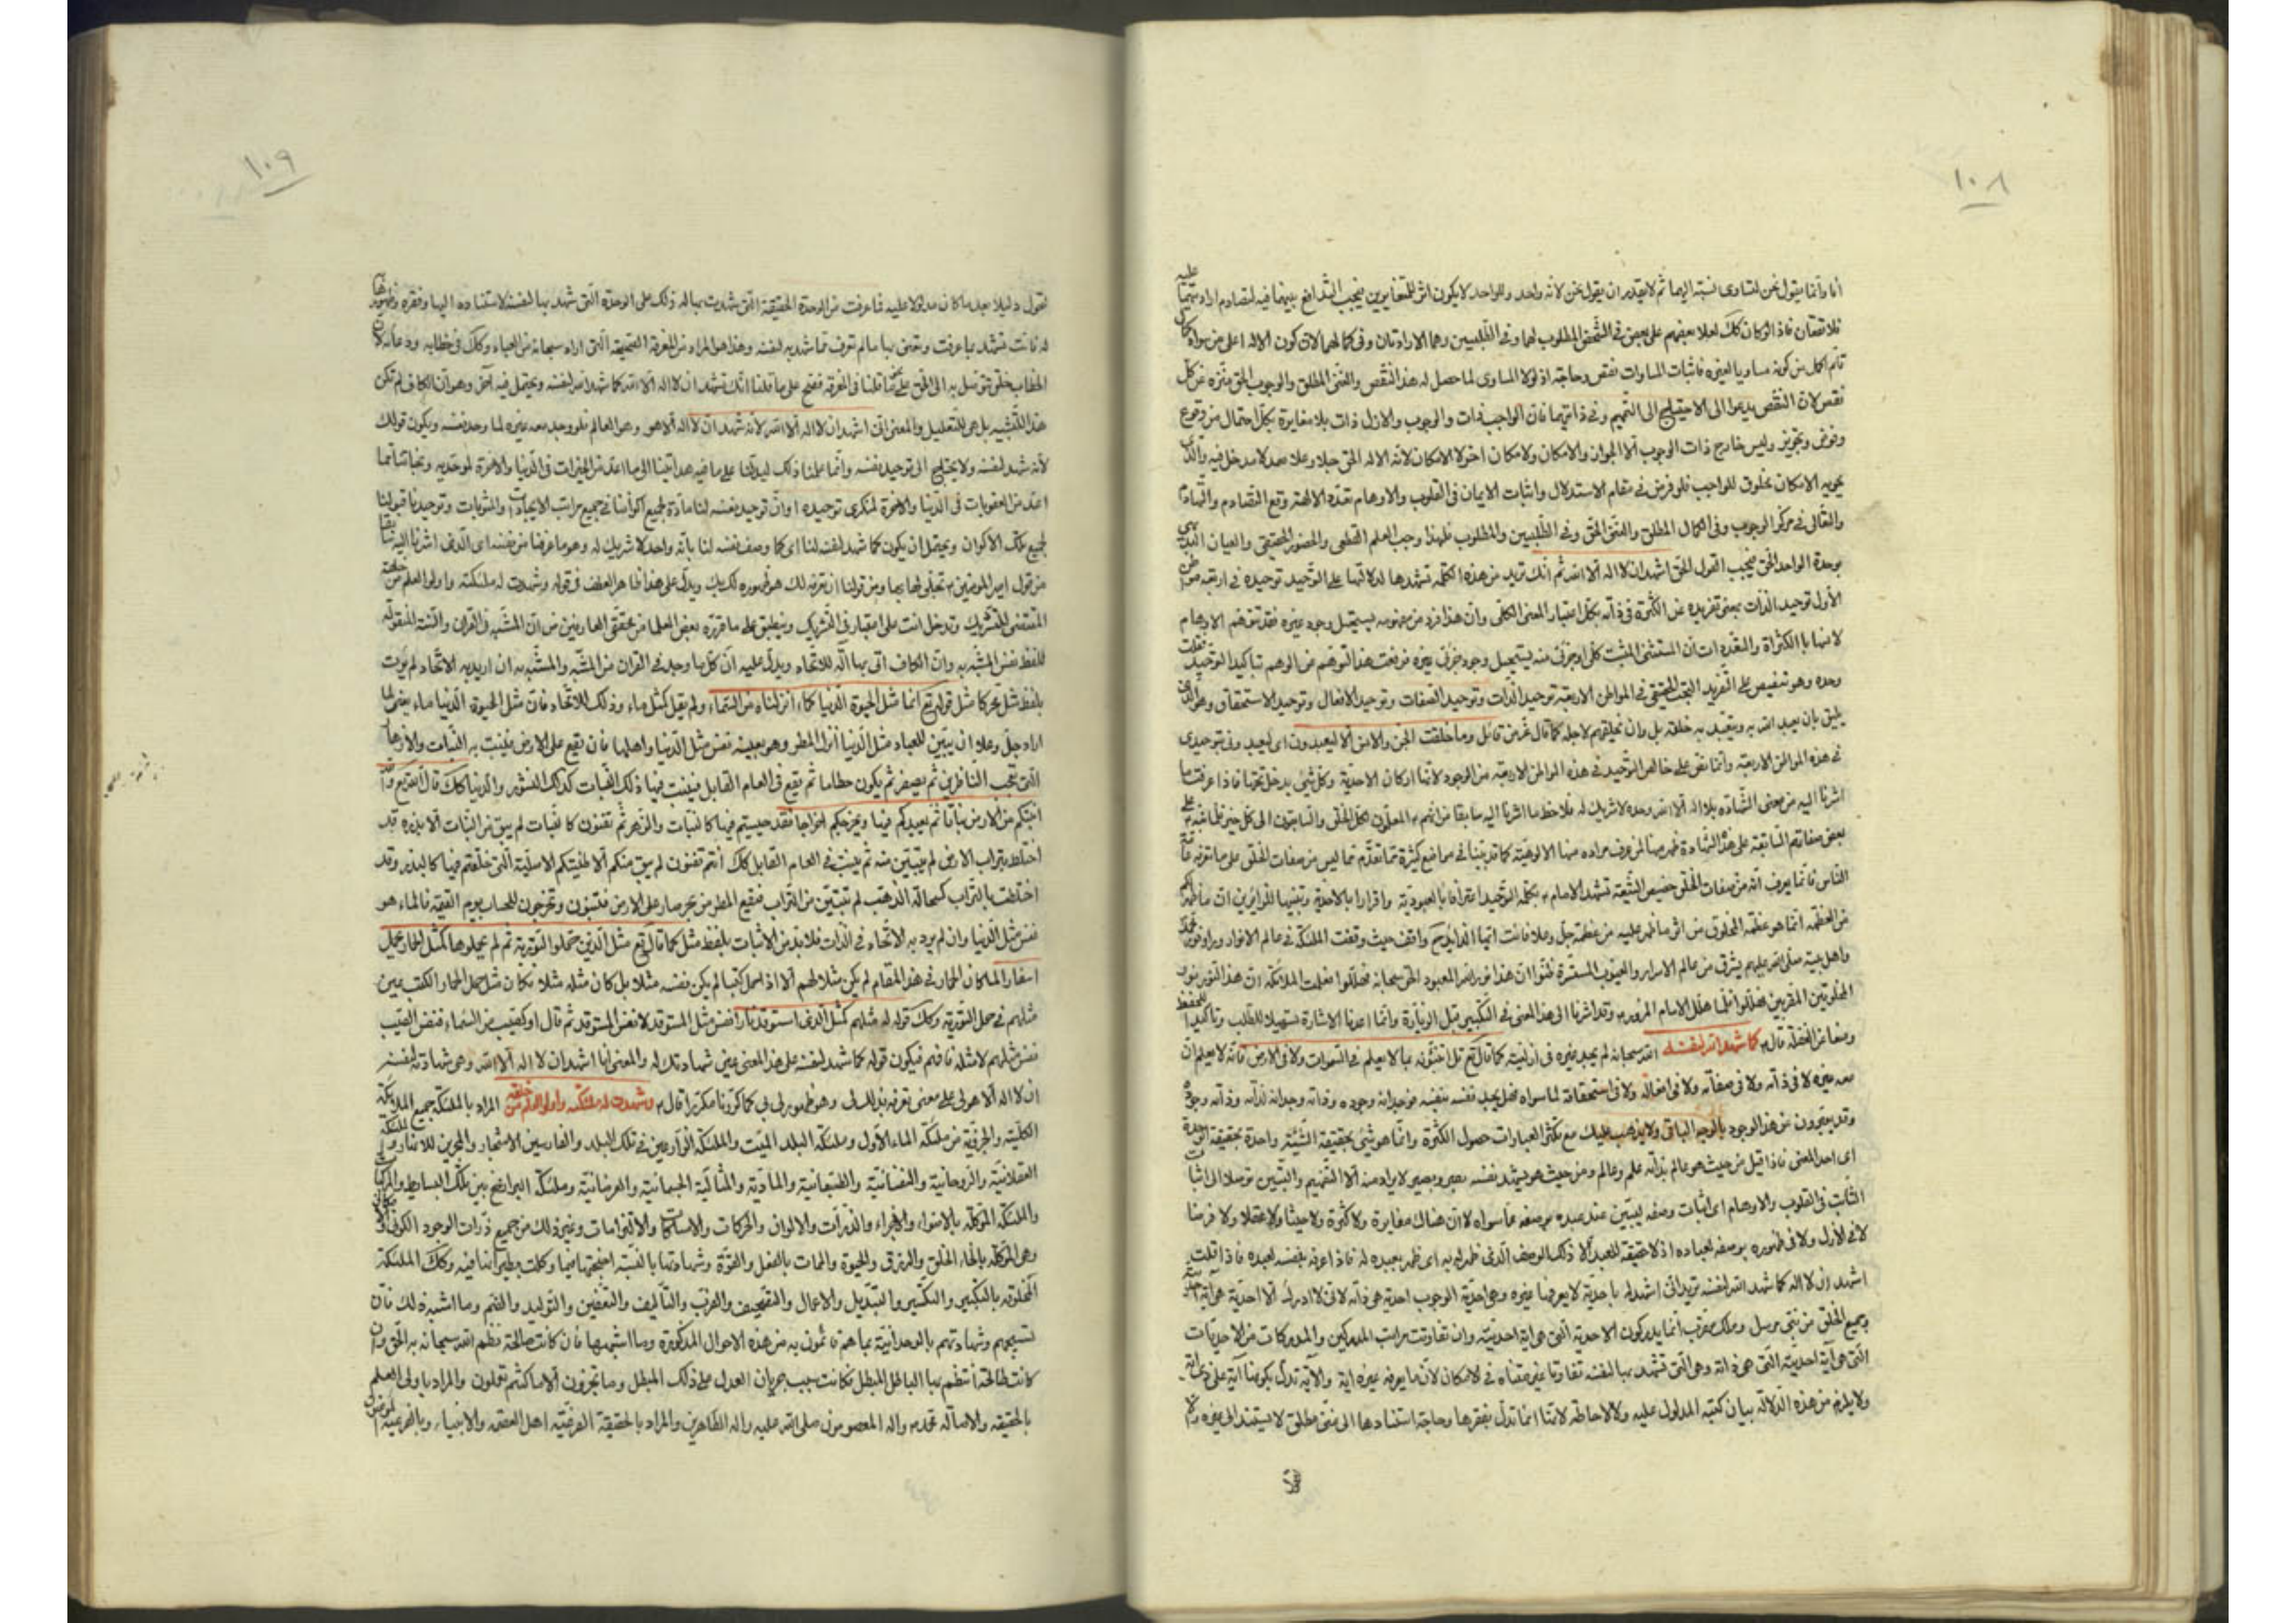 ١٠٨
أنا وأنما يقول عن لتساوى نسبته اليهما ثم لا يقدر ان يقول نحن لانه واحد والواحد لا يكون اثر المتغايرين فيجب التدافع بينهما فيه لتصادم اراد
فلا تتمتان فاذا لو كان كك لعلا بعضهم على بعض فى الشخص المطلوب لهما وفى الطلبيين وهما الارادتان وفى كمالهما لان كون الاله اعلى من سواه
تام اكمل من كونه مساويا لغيره فاثبات المساوات نقص وحاجة اذ لولا المساوى لما حصل له هذا النقص والغنى المطلق والوجوب الحق منزه عن كل
نقص لان النقص يدعوا الى الاحتياج الى التتميم وفى ذاتيهما فان الواجب ذات والوجوب والازل ذات بلا مغايرة بكل احتمال من وقوع
وفرض وتجويز وليس خارج ذات الوجوب الا الجواز والامكان ولا مكان اخر لا لامكان لانه الاله الحق جل وعلا صمد لا مدخل فيه والذى
يحويه الامكان مخلوق للواجب فلو فرض فى مقام الاستدلال واثبات الايمان فى القلوب والاوهام تعدد الالهة وقع التصادم
والتعالى فى مركز الوجوب وفى الكمال المطلق والغنى الحق وفى الطلبيين والمطلوب فلهذا وجب العلم القطعى والحضور الحقيقى والعيان
بوحدة الواحد الحق فيجب القول الحق اشهد ان لا اله الا الله ثم انك تريد من هذه الكلمة تشهدها لدلالتها على التوحيد توحيده فى اربعة
الأول توحيد الذات بمعنى تفريده عن الكثرة فى ذاته بكل اعتبار المعنى الكلى وان هذا فرد من مفهومه يستحيل وجود غيره فقد تتوهم الاوهام
لانسها بالكثرة والتعدد ات ان المستثنى المثبت كلى او جزئى منه يستحيل وجود جزئى غيره فرفعت هذا التوهم من الوهم بتاكيد التوحيد فقلت
وحده وهو تنصيص على التفريد البحت الحقيقى فى المواطن الاربعة توحيد الذات وتوحيد الصفات وتوحيد الافعال وتوحيد الاستحقاق وهو الذى
يليق بان يعبد الله به ويتعبد به خلقه بل وان يخلقهم لاجله كما قال عز من قائل وما خلقت الجن والانس الا ليعبدون اى ليعبد وفى بتوحيدى
فى هذه المواطن الاربعة وانما نص على خالص التوحيد فى هذه المواطن الاربعة من الوجود لانها اركان الاحدية وكل شئ يدخل تحتها فاذا عرفت ما
اشرنا اليه من معنى الشهادة بلا اله الا الله وحده لا شريك له فلاحظ ما اشرنا اليه سابقا من انهم المعلمون لكل الخلق والسابقون الى كل خير
بعض صفاتهم السابقة على هذه الشهادة ظهر منها لمن عرف مراده منها الالوهية كما قد بيّنا فى مواضع كثيرة مما تقدّم مما ليس من صفات الخلق على ما تعرفه
الناس فانما يعرف انه من صفات الخلق خصيص الشيعة تشهد الامام بكلمة التوحيد اعترافا بالعبودية واقرارا بالاحدية وتنبيها للزائرين ان ما ظهر
من العظمة انما هو عظمة المخلوق من اثر ما ظهر عليه من عظمته جل وعلا فانت ايها الزائر لهم واقف حيث وقفت الملائكة فى عالم الانوار ورأوا نور محمد
واهل بيته صلى الله عليهم يشرق من عالم الاسرار والغيوب المستترة ظنوا ان هذا نور الله المعبود الحق سبحانه فهللوا فعلمت الملائكة ان هذا النور نور
المخلوقين المقربين فهللوا انما هلل الامام المزور وقد اشرنا الى هذا المعنى فى التكبير قبل الزيارة وانما اعدنا الاشارة تسهيلا للطلب وتاكيدا للحفظ
ومنعا من الغفلة قال كما شهد الله لنفسه الله سبحانه لم يجد غيره فى ازليته كما قال تع قل اتنبئون الله بما لا يعلم فى السموات ولا فى الارض فانه لا يعلم ان
معه غيره لا فى ذاته ولا فى صفاته ولا فى افعاله ولا فى استحقاقه لما سواه فهل يجد نفسه بنفسه فوجدانه وجوده وذاته وجدانه لذاته وذاته وجوده
وقد يعبرون عن هذا الوجود بالوجه الباقى ولا يذهب عليك مع تكثر العبارات حصول الكثرة وانما هو شئ بحقيقة الشيئية واحدة بحقيقة الوحدة
اى احد المعنى فاذا قيل من حيث هو عالم بذاته علم وعالم ومن حيث هو يشهد نفسه بصر وبصير لا يراد منه الا التفهيم والتبيين توصلا الى اثبات
الثابت فى القلوب والاوهام اى اثبات وصفه ليبين عند عبده بوصفه عما سواه لا ان هناك مغايرة ولا كثرة ولا حيثا ولا عقلا ولا فرضا
لا فى الأزل ولا فى ظهوره بوصفه لعباده اذ لا حقيقة للعبد الا ذلك الوصف الذى ظهر له به اى ظهر بعبده له فاذا عرف نفسه لعبده فاذا قلت
اشهد ان لا اله كما شهد الله لنفسه تريد انى اشهد له باحدية لا يعرضها غيره وهى احدية الوجوب احدية هى ذاته لانى لا ادرك الا احدية هى آية
وجميع الخلق من نبى مرسل وملك مقرب انما يدركون الاحدية التى هى آية احديته وان تفاوتت مراتب المدركين والمدركات من الاحديات
التى هى آية احديته التى هى ذاته وهى التى تشهد بها لنفسه تفاوتا غير متناه فى الامكان لان ما يعرفه غيره آية والآية تدل بكونها آية على ذى الآية
ولا يلزم من هذه الدلالة بيان كنه المدلول عليه ولا الاحاطة لانها انما تدل بفقرها وحاجة استنادها الى غنى مطلق لا يستند الى غيره
١٠٩
لقول دليلا بعد ما كان مدلولا عليه فما عرفت من الوحدة الحقيقية التى شهدت بها له ذلك على الوحدة التى شهد بها لنفسه لاستناده اليها وفقره وظهورها
له فانت تشهد بما عرفت وتعنى بها ما لم تعرف مما شهد به لنفسه وهذا هو المراد من المعرفة الصحيحة التى اراد سبحانه من العباد وكك فى خطابه ودعائه
الخطاب خلق تتوسل به الى الحق على ما قلنا فى المعرفة فصح على ما قلنا انك تشهد ان لا اله الا الله كما شهد الله لنفسه ويحتمل فيه آخر وهو ان الكاف لم تكن
هذا للتشبيه بل هى للتعليل والمعنى انى اشهد ان لا اله الا الله لانه شهد ان لا اله الا هو وهو العالم فلو وجد معه غيره لما وحد نفسه ويكون قولك
لأنه شهد لنفسه ولا يحتاج الى توحيد نفسه وانما علمنا ذلك ليدلنا على ما فيه هدايتنا الى ما اعد من الخيرات فى الدنيا والآخرة لموحديه ونجاتنا مما
اعد من العقوبات فى الدنيا والآخرة لمنكرى توحيده او ان توحيد نفسه لنا مادة لجميع اكواننا فى جميع مراتب الايجادات والشرعيات وتوحيدنا قبولنا
لجميع تلك الاكوان ويحتمل ان يكون كما شهد لنفسه لنا اى كما وصف نفسه لنا بأنه واحد لا شريك له وهو ما عرفنا من نفسه اى الذى اشرنا اليه سابقا
من قول امير المؤمنين تجلى لها بها ومن قولنا ان تعرفه لك هو ظهوره لك بك ويدل على هذا ظاهر العطف فى قوله وشهدت له ملائكته واولوا العلم من خلقه
المقتضى للتشريك وتدخل انت على اعتبار فى التشريك وينطبق على ما قرره بعض العلماء من محققى العارفين من ان المشبه فى القران والسنة المنقولة
للفظ نفس المشبه به وان الكاف اتى بها آلة للاتحاد ويدل عليه ان كلما وجد فى القران من المشبه والمشبه به ان اريد به الاتحاد لم يؤت
بلفظ مثل مجركا مثل قوله تع انما مثل الحيوة الدنيا كماء انزلناه من السماء ولم يقل كمثل ماء وذلك للاتحاد فان مثل الحيوة الدنيا ماء
اراد جل وعلا ان يبين للعباد مثل الدنيا انزل المطر وهو بعينه نفس مثل الدنيا واهلها فأن يقع على الارض فينبت به النبات والازهار
التى تعجب الناظرين ثم يصفر ثم يكون حطاما ثم يقع فى العام القابل فينبت فيها ذلك النبات كذلك النشور والدنيا كك قال تع والله
انبتكم من الارض نباتا ثم يعيدكم فيها ويخرجكم اخراجا فقد حييتم فيها كالنبات والزهر ثم تفنون كالنبات لم يبق من النبات الا بذره قد
اختلط بتراب الارض لم يتبين منه ثم ينبت فى العام القابل كك انتم تفنون لم يبق منكم الا طينتكم الاصلية التى خلقتم منها كالبذر وقد
اختلطت بالتراب كسحالة الذهب لم تتبين من التراب فيقع المطر من بحر صاد على الارض فتنبتون وتخرجون للحساب يوم القيمة فالماء هو
نفس مثل الدنيا وان لم يرد به الاتحاد فى الذات فلا بد من الاثبات بلفظ مثل كما قال تع مثل الذين حملوا التورية ثم لم يحملوها كمثل الحمار يحمل
اسفارا لما كان الحمار فى هذا المقام لم يكن مثلا لهم الا اذ احمل كتبا لم يكن نفسه مثلا بل كان مثله مثلا فكان مثل حمل الحمار الكتب عين
مثلهم فى حمل التورية وكك قوله مثلهم كمثل الذى استوقد نارا فنفس مثل المستوقد لا نفس المستوقد ثم قال او كصيب من السماء فنفس الصيب
نفس مثلهم لا مثله فافهم فيكون قوله كما شهد لنفسه على هذا المعنى عين شهادتك له والمعنى انا اشهد ان لا اله الا الله وهى شهادته لنفسه
ان لا اله الا هو لى على معنى تعرفه بذلك لى وهو ظهوره لى بى كما كررنا مكررا قال وشهدت له ملائكته واولوا العلم من خلقه المراد بالملئكة جميع الملائكة
الكلية والجزئية من ملئكة الماء الأول وملئكة البلد الميت والملئكة الزارعين فى تلك البلد والغارسين الاشجار والمجرين للانهار والملئكة
العقلانية والروحانية والنفسانية والطبيعانية والمادية والمثالية الجسمانية والعرضانية وملئكة البرازخ بين تلك البسايط والمركبات
والملئكة الموكلة بالاضواء والاجزاء والذرات والالوان والحركات والاسكانات والالتزامات وغير ذلك من جميع ذرات الوجود الكونى
وهى الموكلة بانحاء الخلق والرزق والحيوة والممات بالفعل والقوة وشهادتها بالنسبة اجنحتها فيها وكلت بطيرانها فيه وكك الملئكة
المخلوقة بالتكبير والتكسير والتبديل والاعمال والتصحيف والضرب والتأليف والتعفين والتوليد والضم وما اشبه ذلك فان
تسبيحهم وشهادتهم بالوحدانية بما هم قائمون به من هذه الاحوال المذكورة وما اشبهها فأن كانت صالحة نظم الله سبحانه به الحق وان
كانت طالحة انتظم بها الباطل المبطل فكانت سبب جريان العدل على ذلك المبطل وما تجزون الا ما كنتم تعملون والمراد باولى العلم
بالحقيقة والاصالة محمد واله المعصومون صلى الله عليه واله الطاهرين والمراد بالحقيقة الفرعية اهل العصمة والانبياء وبالفرعية